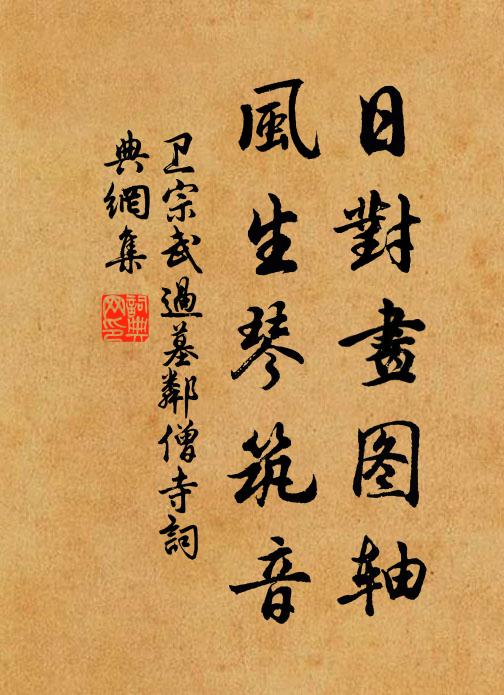 日對畫图轴
風生琴筑音
卫宗武過墓鄰僧寺詞
典網集
詞典
网印